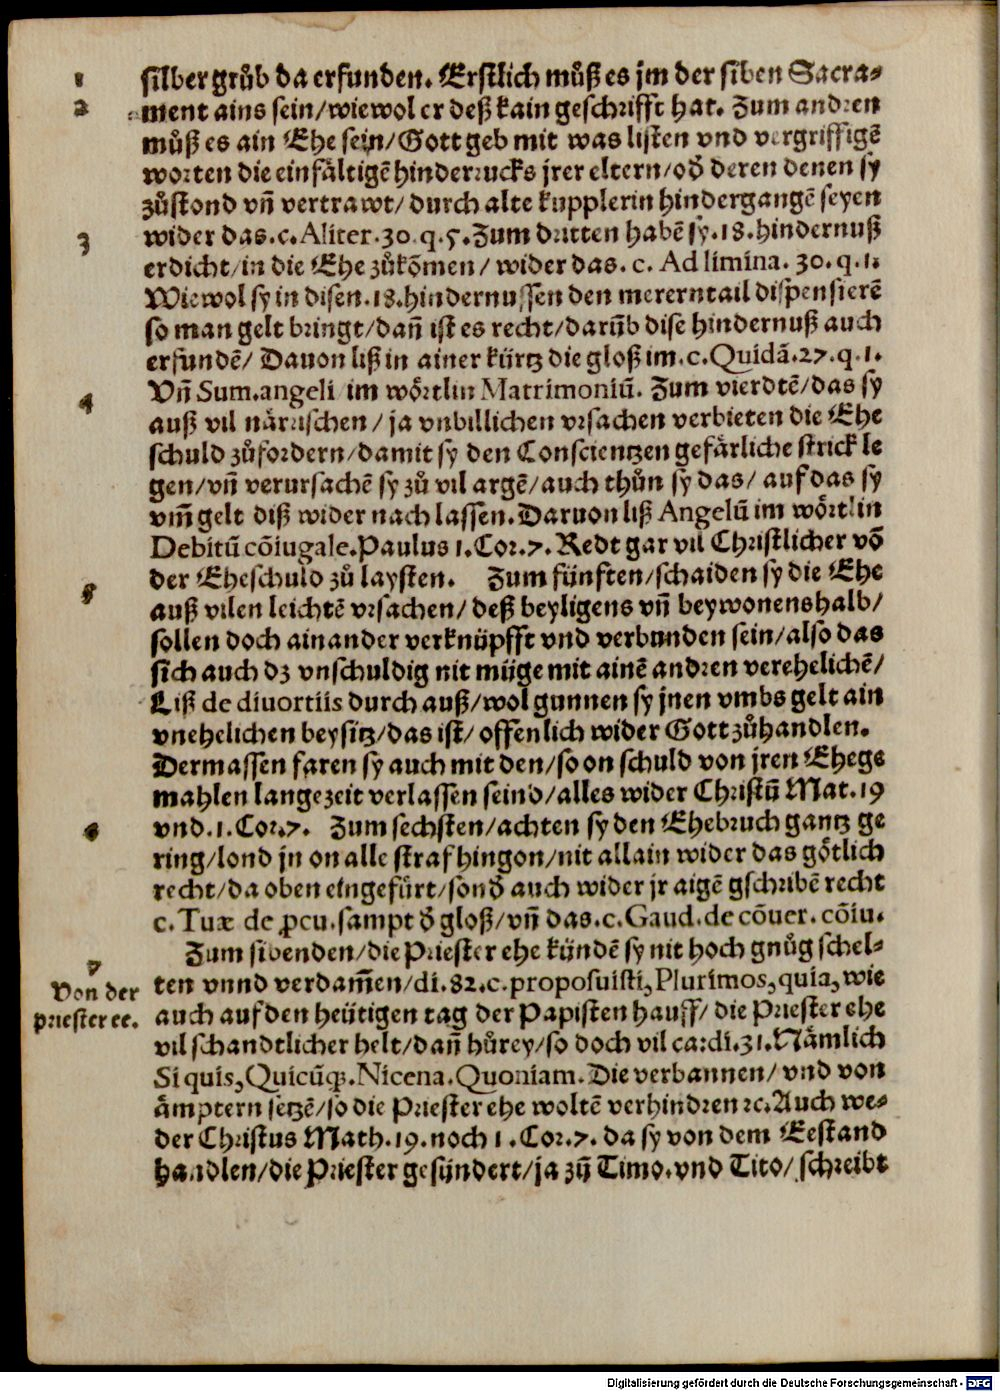 1 silber grůb da erfunden. Erstlich můß es jm der siben Sacra-
2 ment ains sein/wiewol er deß kain geschrifft hat. Zum andren
můß es ain Ehe sein/Gott geb mit was listen vnd vergriffigē
worten die einfältigē hinderrucks jrer eltern/oď deren denen sy
zůstond vñ vertrawt/durch alte kupplerin hindergangē seyen
3 wider das.c.Aliter.30.q.5.Zum dritten habē sy.18.hindernuß
erdicht/in die Ehe zůkōmen/wider das.c. Ad limina. 30.q.1.
Wiewol sy in disen.18.hindernussen den merern tail dispensierē
so man gelt bringt/dañ ist es recht/darūb dise hindernuß auch
erfundē/ Dauon liß in ainer kürtz die gloß im.c.Quidā.27.q.1.
4 Vñ Sum.angeli im wörtlin Matrimoniū. Zum vierdtē/das sy
auß vil närrischen/ja vnbillichen vrsachen verbieten die Ehe
schuld zůfordern/damit sy den Conscientzen gefärliche strick le
gen/vñ verursachē sy zů vil argē/auch thůn sy das/auf das sy
vm̄ gelt diß wider nach lassen.Daruon liß Angelū im wörtlin
Debitū cōiugale.Paulus 1.Cor.7.Redt gar vil Christlicher vō
5 der Eheschuld zů laysten. Zum fünften/schaiden sy die Ehe
auß vilen leichtē vrsachen/deß beyligens vñ beywonenshalb/
sollen doch ainander verknüpfft vnd verbunden sein/also das
sich auch dz vnschuldig nit müge mit ainē andren verehelichē/
Liß de diuortiis durch auß/wol gunnen sy jnen vmbs gelt ain
vnehelichen beysitz/das ist/offenlich wider Gott zůhandlen.
Dermassen faren sy auch mit den/so on schuld von jren Ehege
mahlen lange zeit verlassen seind/alles wider Christū Mat.19
6 vnd.1.Cor.7. Zum sechsten/achten sy den Ehebruch gantz ge
ring/lond jn on alle straf hingon/nit allain wider das götlich
recht/da oben eingefürt/sonď auch wider jr aigē gschribē recht
c.Tuæ de ꝓcu.sampt ď gloß/vñ das.c.Gaud.de cōuer.cōiu.
7 Zum sibenden/die Priester ehe kündē sy nit hoch gnůg schel-
Von der ten vnnd verdam̄en/di.82.c.proposuisti,Plurimos,quia,wie
priester ee. auch auf den heütigen tag der Papisten hauff/die Priester ehe
vil schandtlicher helt/dañ hůrey/so doch vil ca.di.31.Nämlich
Si quis,Quicūq̄.Nicena.Quoniam.Die verbannen/vnd von
ämptern setzē/so die Priester ehe woltē verhindren ꝛc.Auch we-
der Christus Math.19.noch 1.Cor.7.da sy von dem Eestand
handlen/die Priester gesündert/ja zů Timo.vnd Tito/schreibt
Digitalisierung gefördert durch die Deutsche Forschungsgemeinschaft - DFG